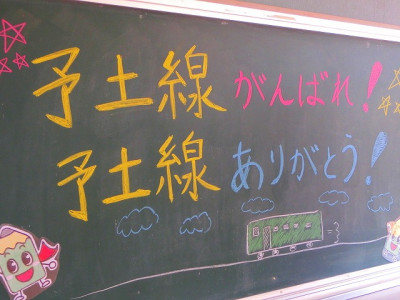 予土線 がんばれ!
予土線 ありがとう!